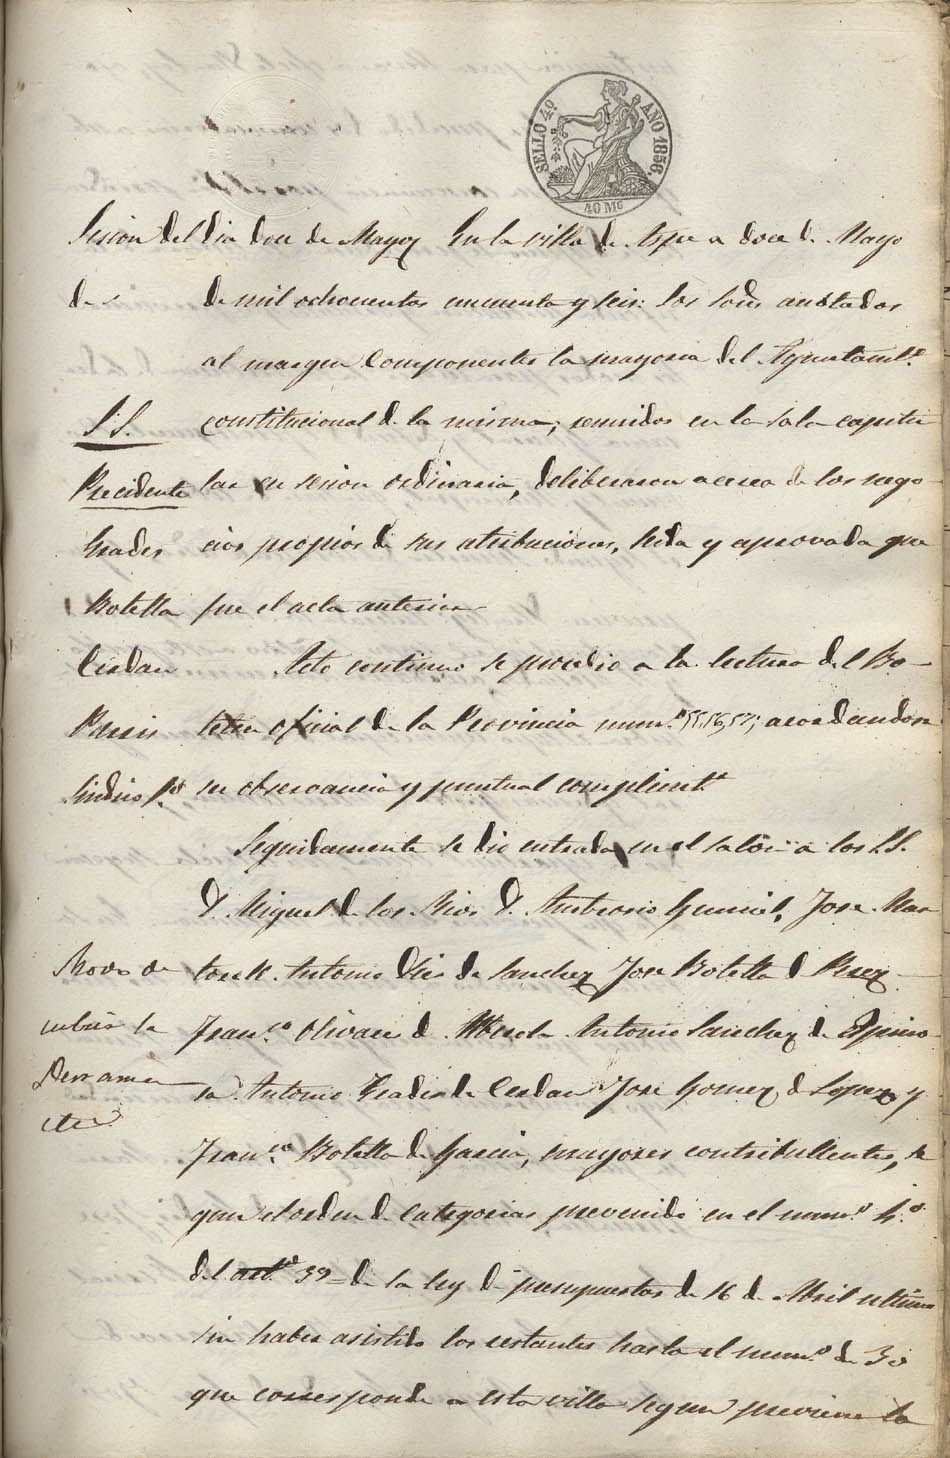 SELLO 4º AÑO 1856.
40 Ms
Sesion del dia doce de Mayo
de
En la villa de Aspe a doce de Mayo
de mil ochocientos cincuenta y seis: los Sores anotados
al margen componentes la mayoria del Ayuntamto
S. S.
Precidente
Botella
Cerdan
Sindico
constitucional de la misma, reunidos en la sala capitu
lar en sesion ordinaria, deliberaron acerca de los nego
cios propios de sus atribuciones, leida y aprovada que
fue el acta anterior
Acto continuo se procedio a la lectura del Bo-
letin oficial de la Provincia numo 55, 56, 57; acordandose
su observancia y puntual complimto
Seguidamente se dio entrada en el salon a los SS.
D. Miguel de los Rios D. Ambrosio Jose
Antonio de Sanchez Jose Botella de Perez
Franco Olivares de Antonio Sanchez de Espino
sa Antonio de Cerdan Jose Gomez de Lopez y
Franco Botella de Garcia, mayores contribullentes, se
gun el orden de categorias prevenido en el numo 4.o
del arto 39 de la ley de presupuestos de 16 de Abril ultimo
sin haber asistido los restantes hasta el numo de 30
que corresponde a esta villa segun previene la
Modo de
cubrir la
Derrama